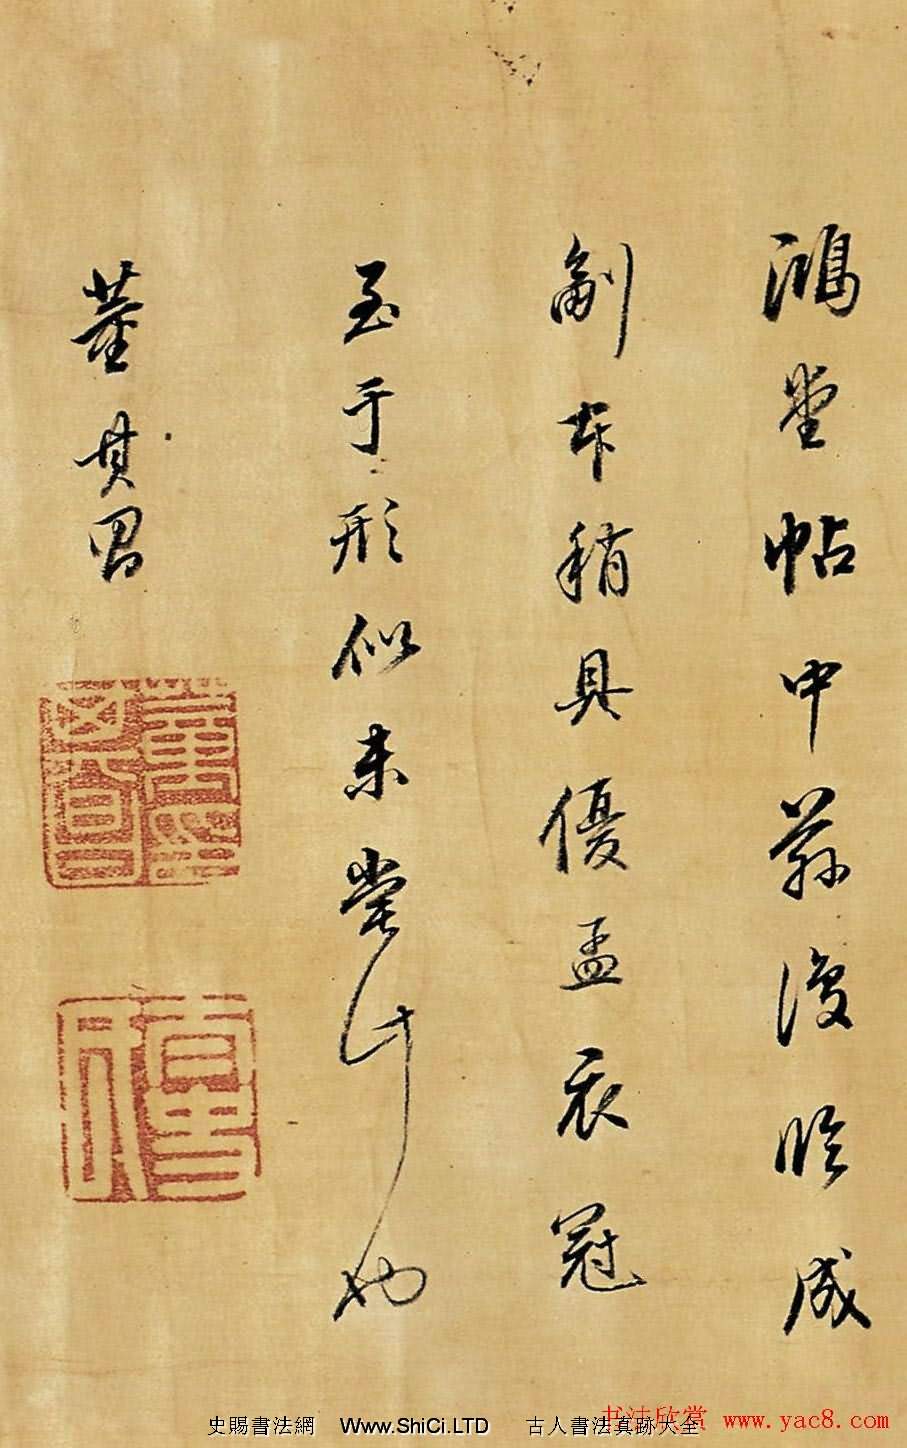 鴻堂帖中茲復臨成
副本稍具優孟衣冠
至于形似未嘗計也
董其昌
史賜書法網 Www.ShiCi.LTD 古人書法真跡大全
书法欣赏 www.yac8.com